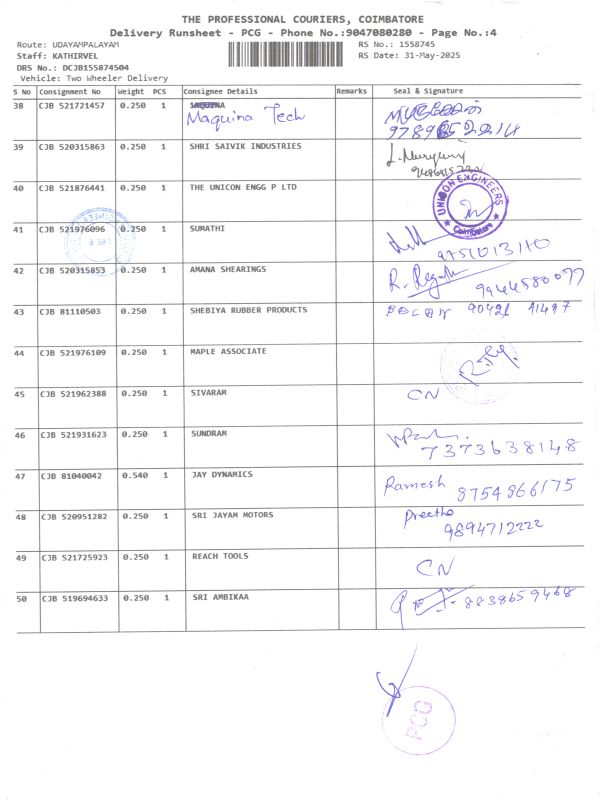 THE PROFESSIONAL COURIERS, COIMBATORE
Delivery Runsheet - PCG - Phone No.:9047080280 - Page No.:4
Route: UDAYAMPALAYAM RS No.: 1558745
Staff: KATHIRVEL RS Date: 31-May-2025
DRS No.: DCJB155874504
Vehicle: Two Wheeler Delivery
S No Consignment No Weight PCS Consignee Details Remarks Seal & Signature
38 CJB 521721457 0.250 1
Maquina Tech
39 CJB 520315863 0.250 1 SHRI SAIVIK INDUSTRIES
40 CJB 521876441 0.250 1 THE UNICON ENGG P LTD UNICON ENGINEERS Coimbatore
41 CJB 521976096 0.250 1 SUMATHI
42 CJB 520315853 0.250 1 AMANA SHEARINGS
9944580077
43 CJB 81110503 0.250 1 SHEBIYA RUBBER PRODUCTS 90421 41497
44 CJB 521976109 0.250 1 MAPLE ASSOCIATE
45 CJB 521962388 0.250 1 SIVARAM CN
46 CJB 521931623 0.250 1 SUNDRAM
7373638148
47 CJB 81040042 0.540 1 JAY DYNAMICS Ramesh 8754866175
48 CJB 520951282 0.250 1 SRI JAYAM MOTORS Preetha
9894712222
49 CJB 521725923 0.250 1 REACH TOOLS CN
50 CJB 519694633 0.250 1 SRI AMBIKAA 8838659468
PCG